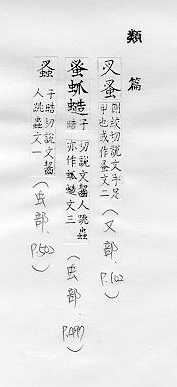 類篇
叉蚤 側絞切說文手足
甲也或作蚤文二
(又部. P.102)
子晧切說文齧人跳蟲
亦作 文三
(虫部. P.497)
子晧切說文齧
人跳蟲文一
(虫部. P.502)